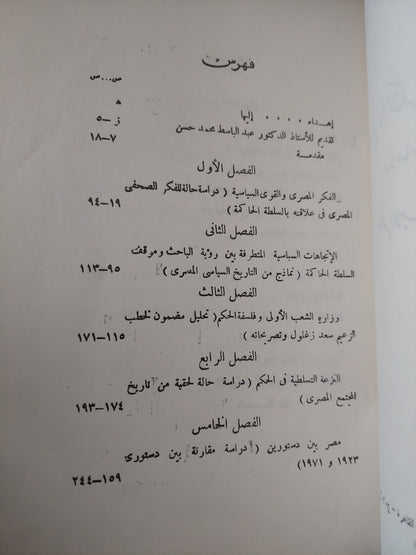 فهرس
ص...ص
إهداء .... إليها
ه
تقديم للأستاذ الدكتور عبد الباسط محمد حسن
ز-٥
مقدمة
٧-١٨
الفصل الأول
الفكر المصرى والقوى السياسية ( دراسة حالة للفكر الصحفى
المصرى فى علاقته بالسلطة الحاكمة )
١٩-٩٤
الفصل الثانى
الإتجاهات السياسية المتطرفة بين رؤية الباحث وموقف
السلطة الحاكمة ( نماذج من التاريخ السياسى المصرى )
٩٥-١١٣
الفصل الثالث
وزارة الشعب الأولى وفلسفة الحكم ( تحليل مضمون لخطب
الزعيم سعد زغلول وتصريحاته )
١١٥-١٧١
الفصل الرابع
النزعة التسلطية فى الحكم ( دراسة حالة لحقبة من تاريخ
المجتمع المصرى )
١٧٤-١٩٣
الفصل الخامس
مصر بين دستورين ( دراسة مقارنة بين دستورى
١٩٢٣ و ١٩٧١ )
١٥٩-٢٤٤